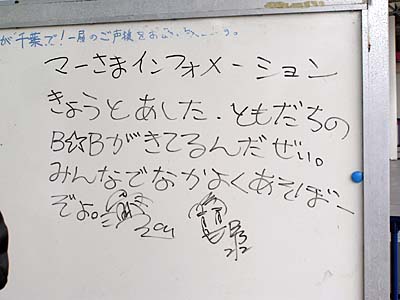 が千葉で！一層のご声援をお願い
マーさまインフォメーション
きょうとあした、ともだちの
B☆Bがきてるんだぜい。
みんなでなかよくあそぼー
ぞよ。